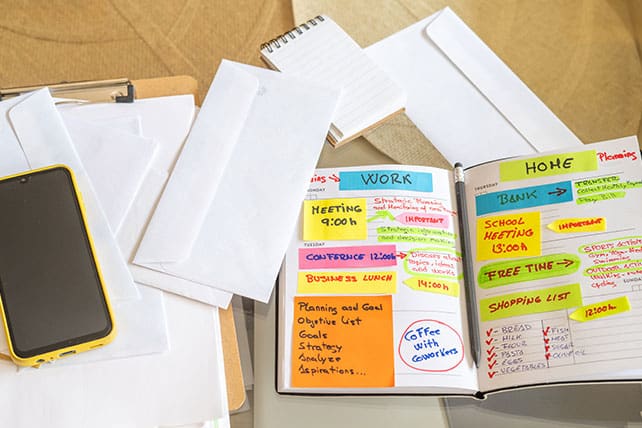 WORK
MONDAY
MEETING
9:00h
Strategic Planning
and Monitoring of
IMPORTANT
Strategic information
and decision making
TUESDAY
CONFERNCE 12:00h
Discuss about
topics, ideas
and goals
BUSINESS LUNCH
14:00h
Planning and Goal
Objective List
Goals
Strategy
Analyze
Aspirations...
COFFEE
WITH
COWORKERS
HOME
Planning
THURSDAY
BANK
TRANSFER
Pay Bill
SCHOOL
MEETING
13:00h
IMPORTANT
FREE TIME
SPORTS ACTIVITY
GYM, YOGA
Swimming
OUTDOOR
Walking
Cycling
SHOPPING LIST
12:00h
- BREAD
- MILK
- FLOUR
- PASTA
- EGGS
- VEGETABLES
- FISH
- MEAT